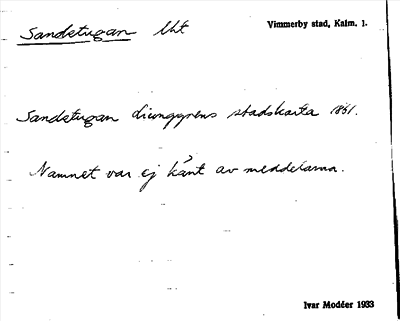 Sandstugan Uht
Vimmerby stad, Kalm. l.
Sandstugan Ljunggrens stadskarta 1861.
Namnet var ej känt av meddelarna.
Ivar Modéer 1933